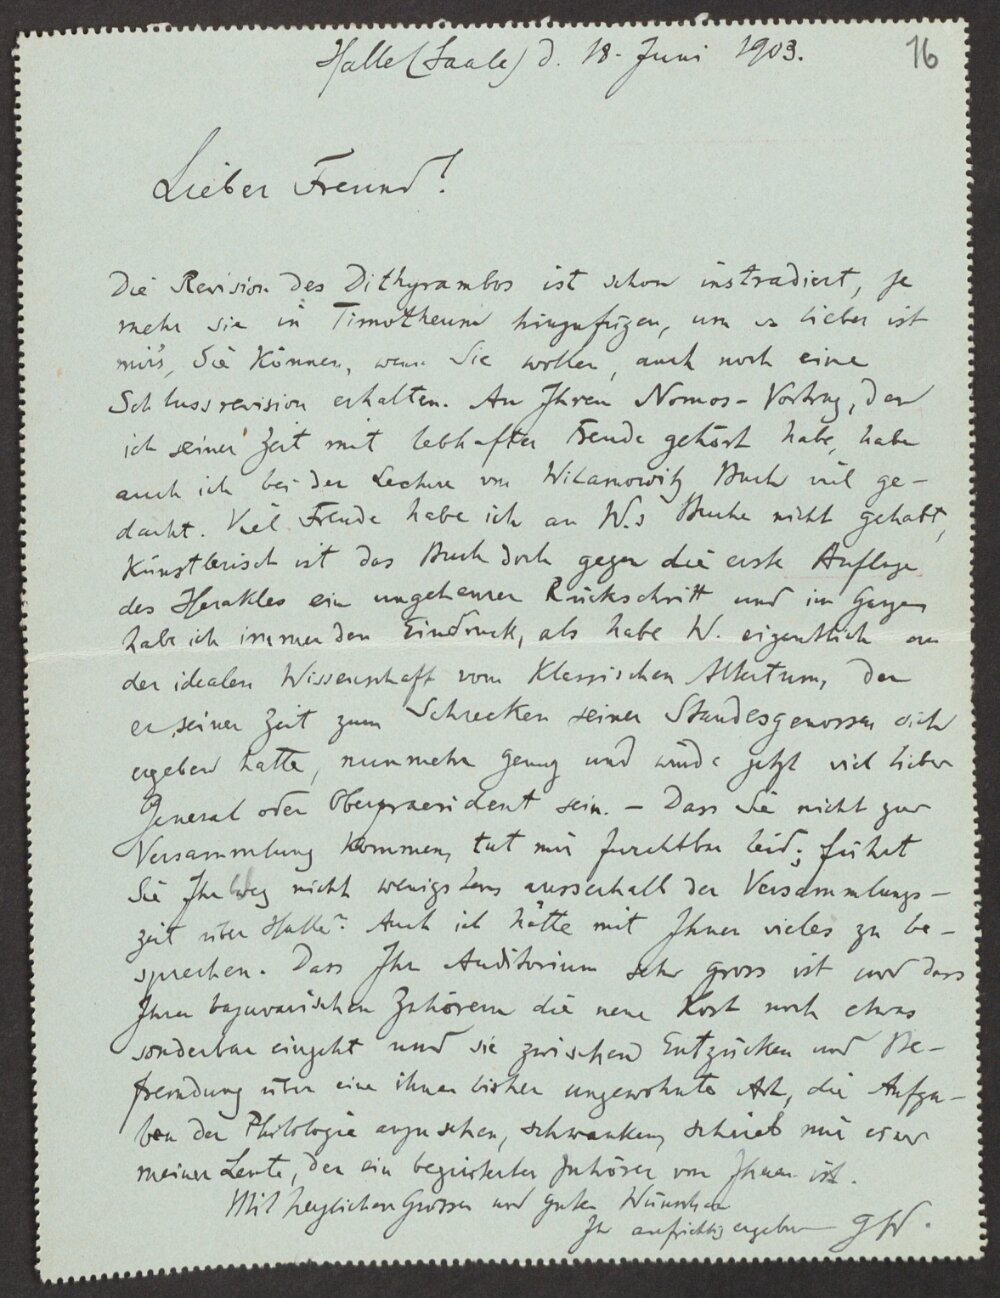 Halle (Saale) d. 18. Juni 1903.
16
Lieber Freund!
Die Revision des Dithyrambos ist schon instradiert, je
mehr sie in Timotheum hinzufügen, um so lieber ist
mir's, Sie können, wenn Sie wollen, auch noch eine
Schlussrevision erhalten. An Ihren Nomos-Vortrag, den
ich seiner Zeit mit lebhafter Freude gehört habe, habe
auch ich bei der Lectüre von Wilamowitz Buch viel ge-
dacht. Viel Freude habe ich an W.s Buche nicht gehabt,
künstlerisch ist das Buch doch gegen die erste Auflage
des Herakles ein ungeheurer Rückschritt und im Ganzen
habe ich immer den Eindruck, als habe W. eigentlich an
der idealen Wissenschaft vom klassischen Altertum, der
er seiner Zeit zum Schrecken seiner Standesgenossen sich
ergeben hatte, nunmehr genug und würde jetzt viel lieber
General oder Oberpraesident sein. – Dass Sie nicht zur
Versammlung kommen, tut mir furchtbar leid; führt
Sie Ihr Weg nicht wenigstens ausserhalb der Versammlungs-
zeit über Halle? Auch ich hätte mit Ihnen vieles zu be-
sprechen. Dass Ihr Auditorium sehr gross ist und dass
Ihren bajuvarischen Zuhörern die neue Kost noch etwas
sonderbar eingeht und sie zwischen Entzücken und Be-
fremdung über eine ihnen bisher ungewohnte Art, die Aufga-
ben der Philologie anzusehen, schwanken, schrieb mir einer
meiner Leute, der ein begeisterter Zuhörer von Ihnen ist.
Mit herzlichen Grüssen und guten Wünschen
Ihr aufrichtig ergebener GW.